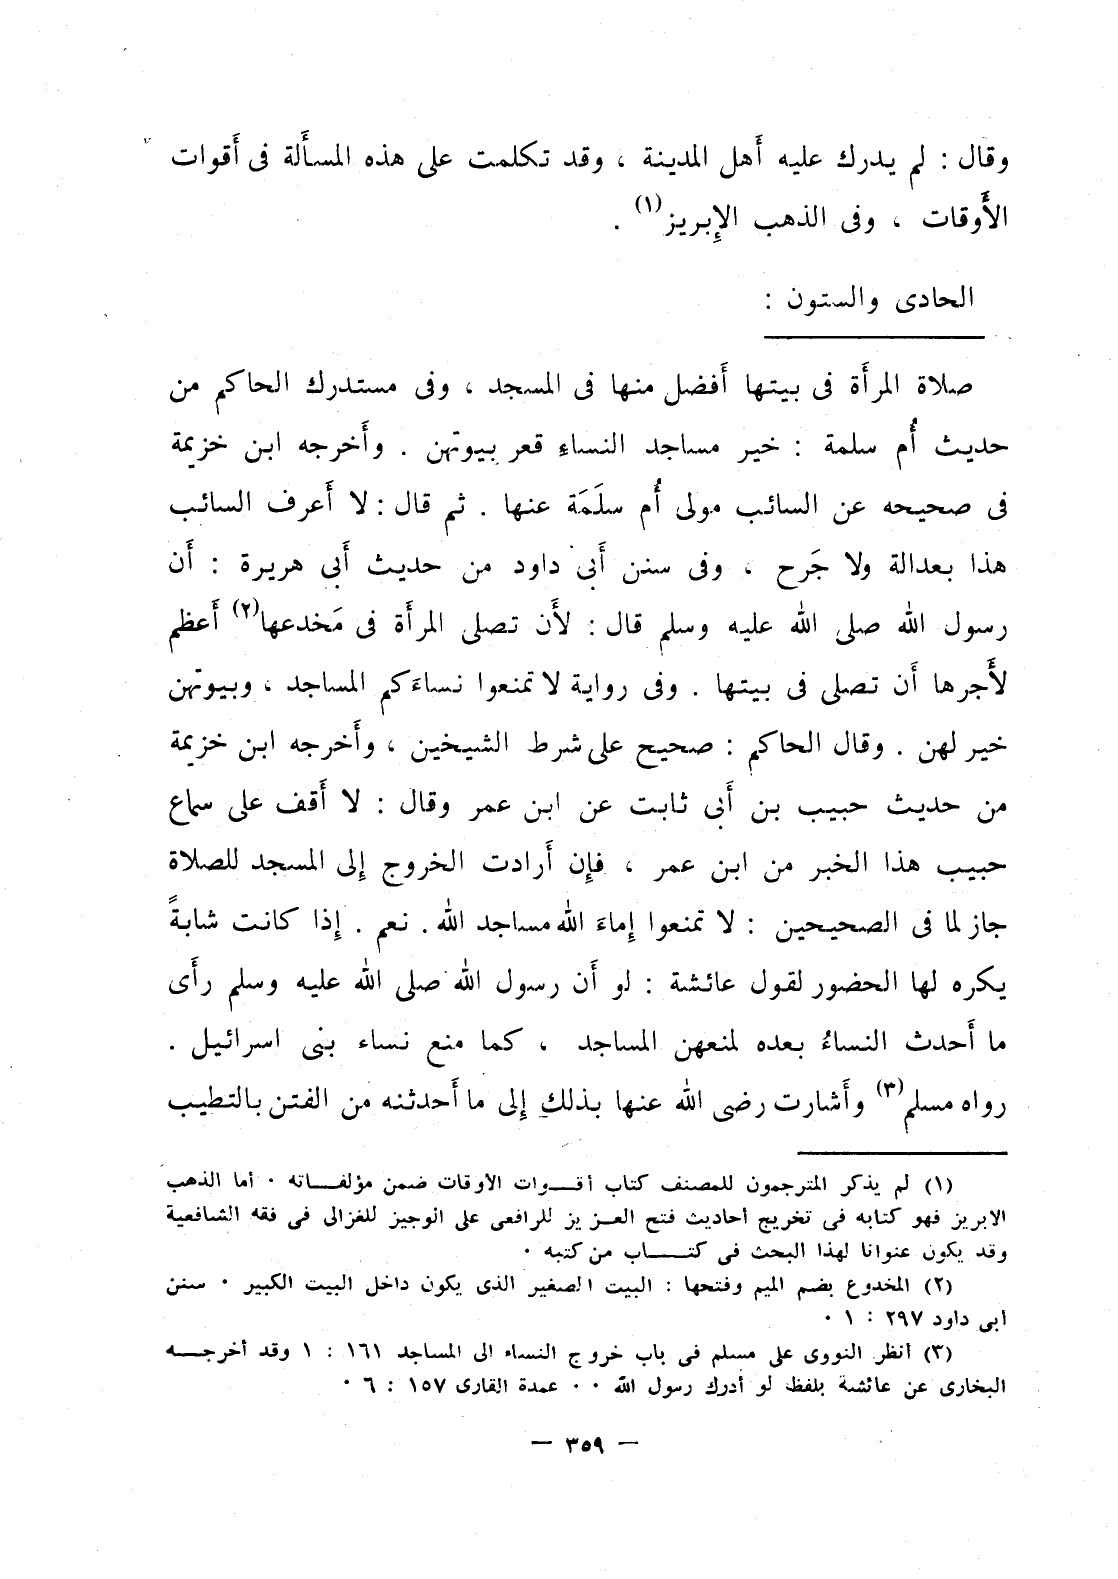 وقال : لم يدرك عليه أَهل المدينة ، وقد تكلمت على هذه المسأَلة فى أَقوات
الأَوقات ، وفى الذهب الإِبريز(١) .
الحادى والستون :
صلاة المرأَة فى بيتها أَفضل منها فى المسجد ، وفى مستدرك الحاكم من
حديث أُم سلمة : خير مساجد النساءِ قعر بيوتهن . وأَخرجه ابن خزيمة
فى صحيحه عن السائب مولى أُم سلَمَة عنها . ثم قال : لا أَعرف السائب
هذا بعدالة ولا جَرح ، وفى سنن أَبى داود من حديث أَبى هريرة : أَن
رسول الله صلى الله عليه وسلم قال : لأَن تصلى المرأَة فى مَخدعها(٢) أَعظم
لأَجرها أَن تصلى فى بيتها . وفى رواية لا تمنعوا نساءَكم المساجد ، وبيوتهن
خير لهن . وقال الحاكم : صحيح على شرط الشيخين ، وأَخرجه ابن خزيمة
من حديث حبيب بن أَبى ثابت عن ابن عمر وقال : لا أَقف على سماع
حبيب هذا الخبر من ابن عمر ، فإِن أَرادت الخروج إِلى المسجد للصلاة
جاز لما فى الصحيحين : لا تمنعوا إِماءَ الله مساجد الله . نعم . إِذا كانت شابةً
يكره لها الحضور لقول عائشة : لو أَن رسول الله صلى الله عليه وسلم رأَى
ما أَحدث النساءُ بعده لمنعهن المساجد ، كما منع نساء بنى اسرائيل .
رواه مسلم(٣) وأَشارت رضى الله عنها بذلك إِلى ما أَحدثنه من الفتن بالتطيب
(١) لم يذكر المترجمون للمصنف كتاب أقوات الأوقات ضمن مؤلفاته . أما الذهب
الابريز فهو كتابه فى تخريج أحاديث فتح العزيز للرافعى على الوجيز للغزالى فى فقه الشافعية
وقد يكون عنوانا لهذا البحث فى كتاب من كتبه .
(٢) المخدوع بضم الميم وفتحها : البيت الصغير الذى يكون داخل البيت الكبير . سنن
أبى داود ٢٩٧ : ١ .
(٣) أنظر النووى على مسلم فى باب خروج النساء الى المساجد ١٦١ : ١ وقد أخرجه
البخارى عن عائشة بلفظ لو أدرك رسول الله . . عمدة القارى ١٥٧ : ٦ .
— ٣٥٩ —